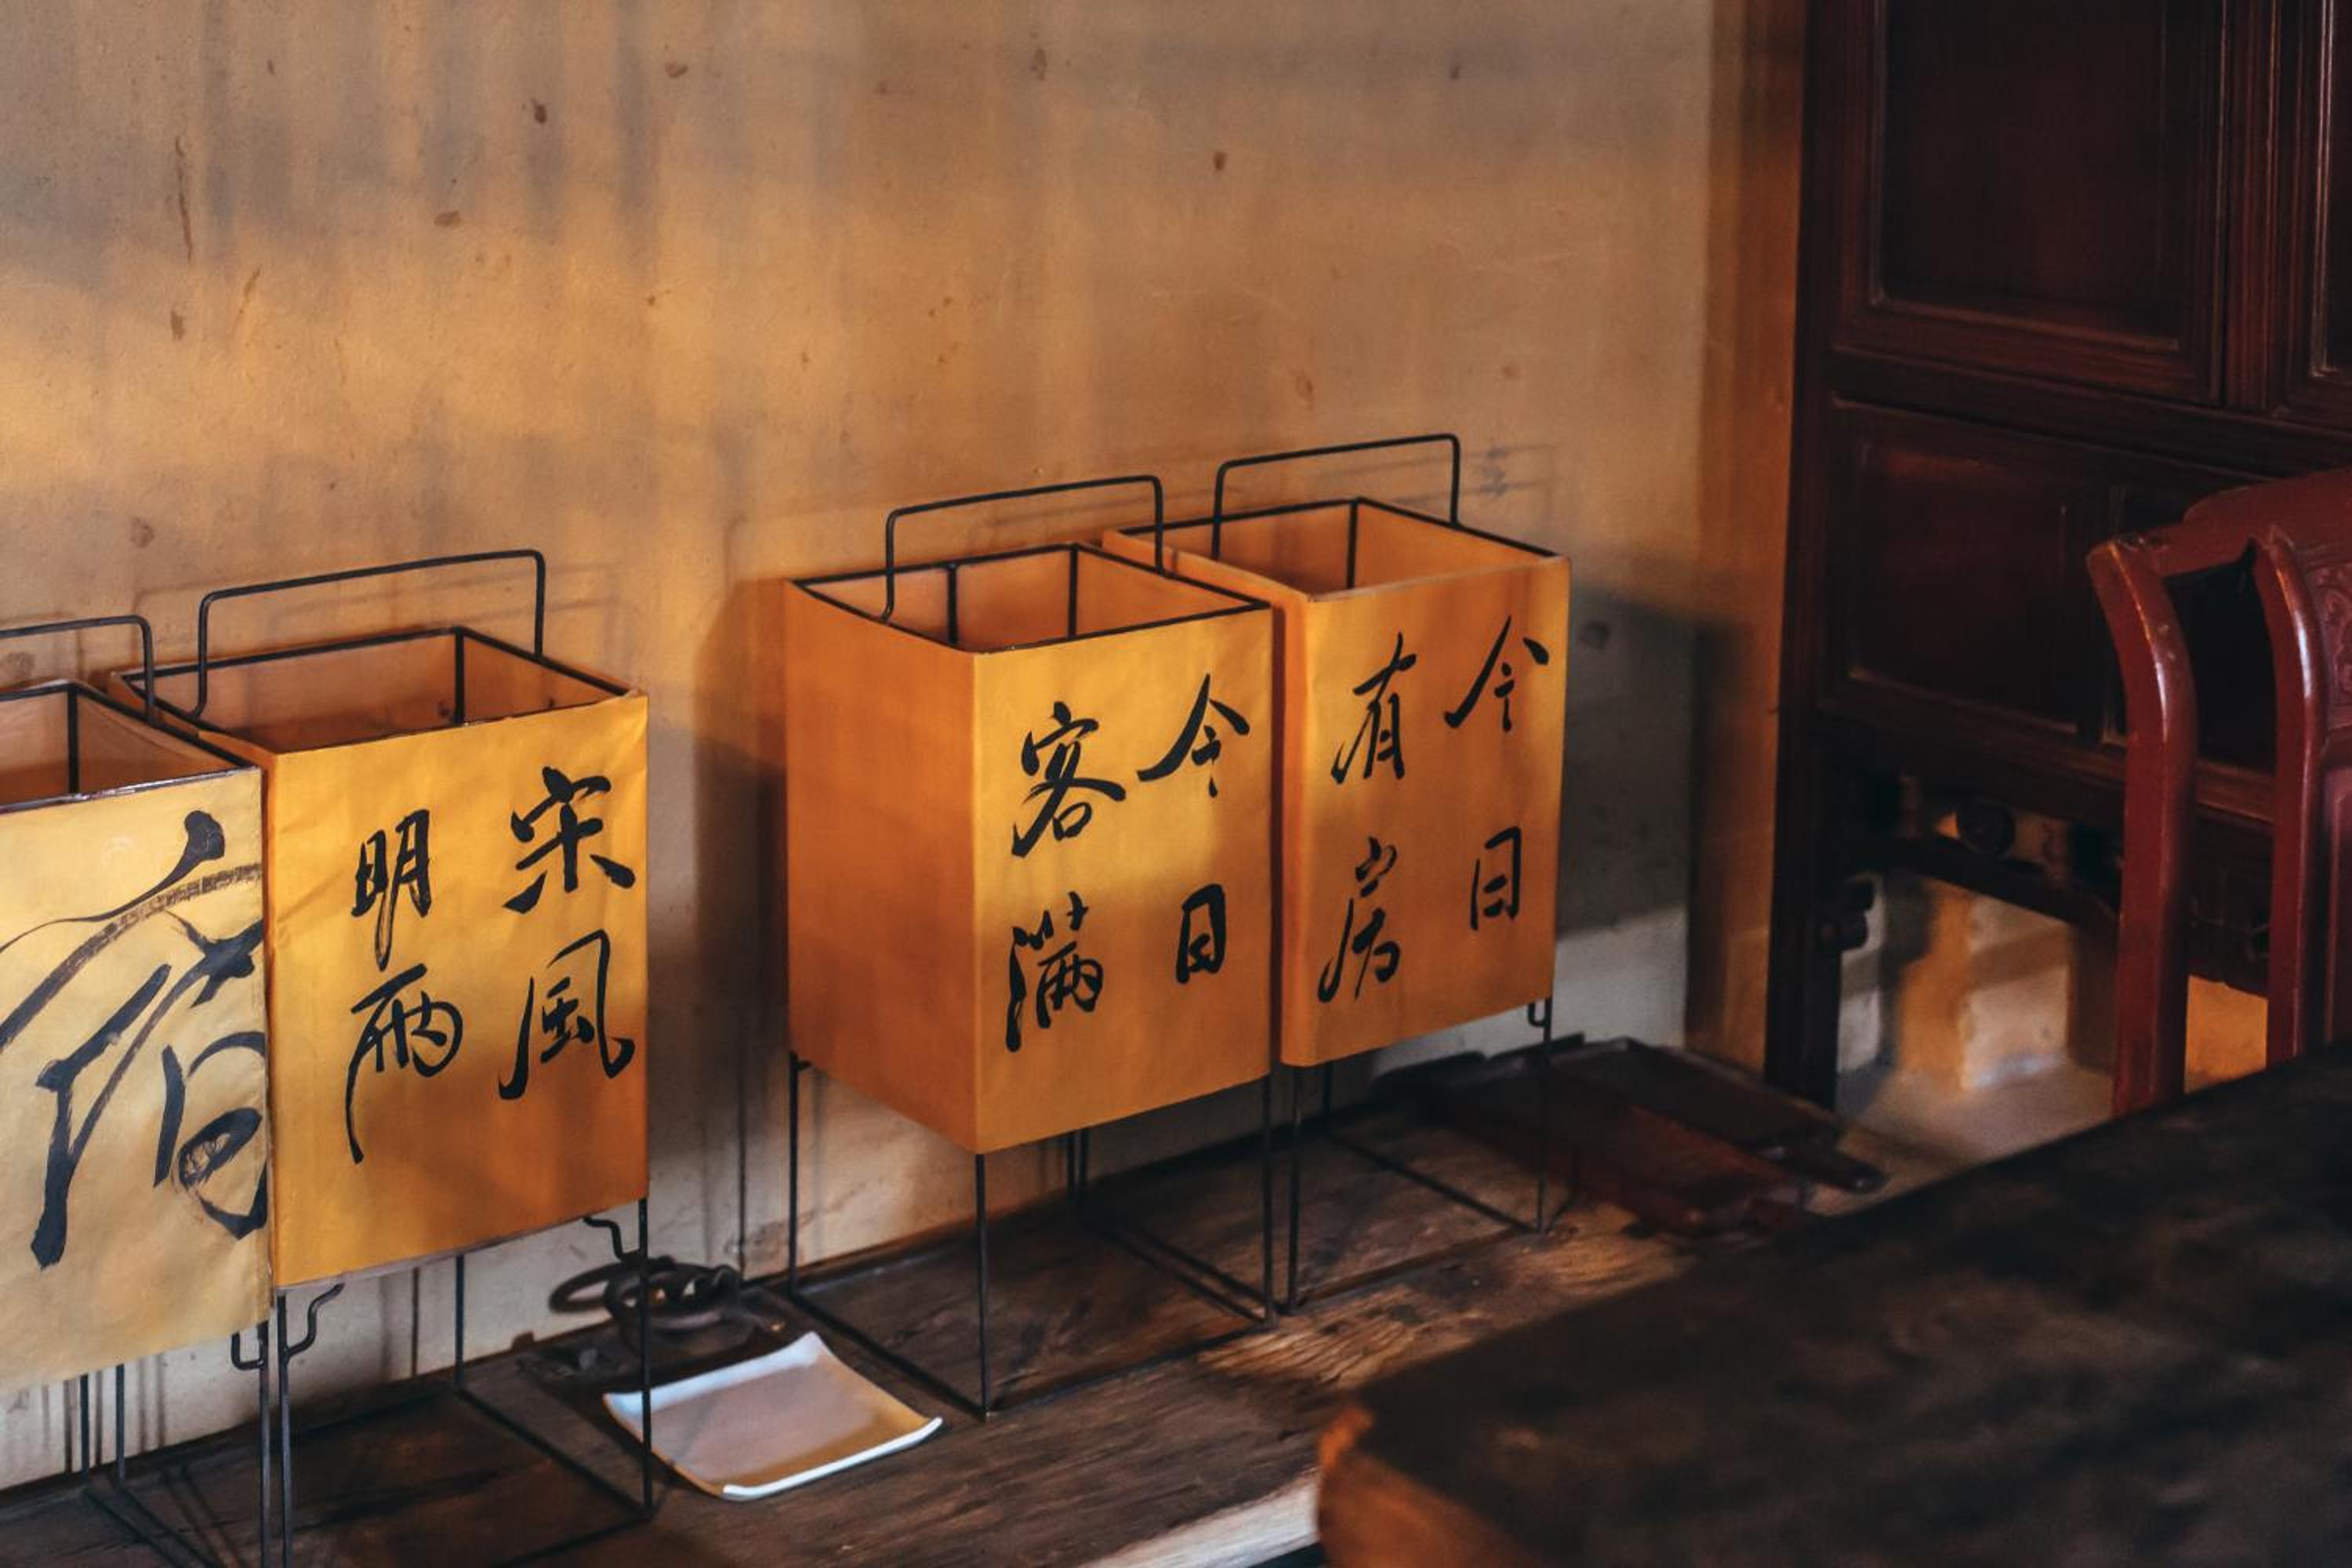 宿
宋風
明雨
今日
客滿
今日
有房